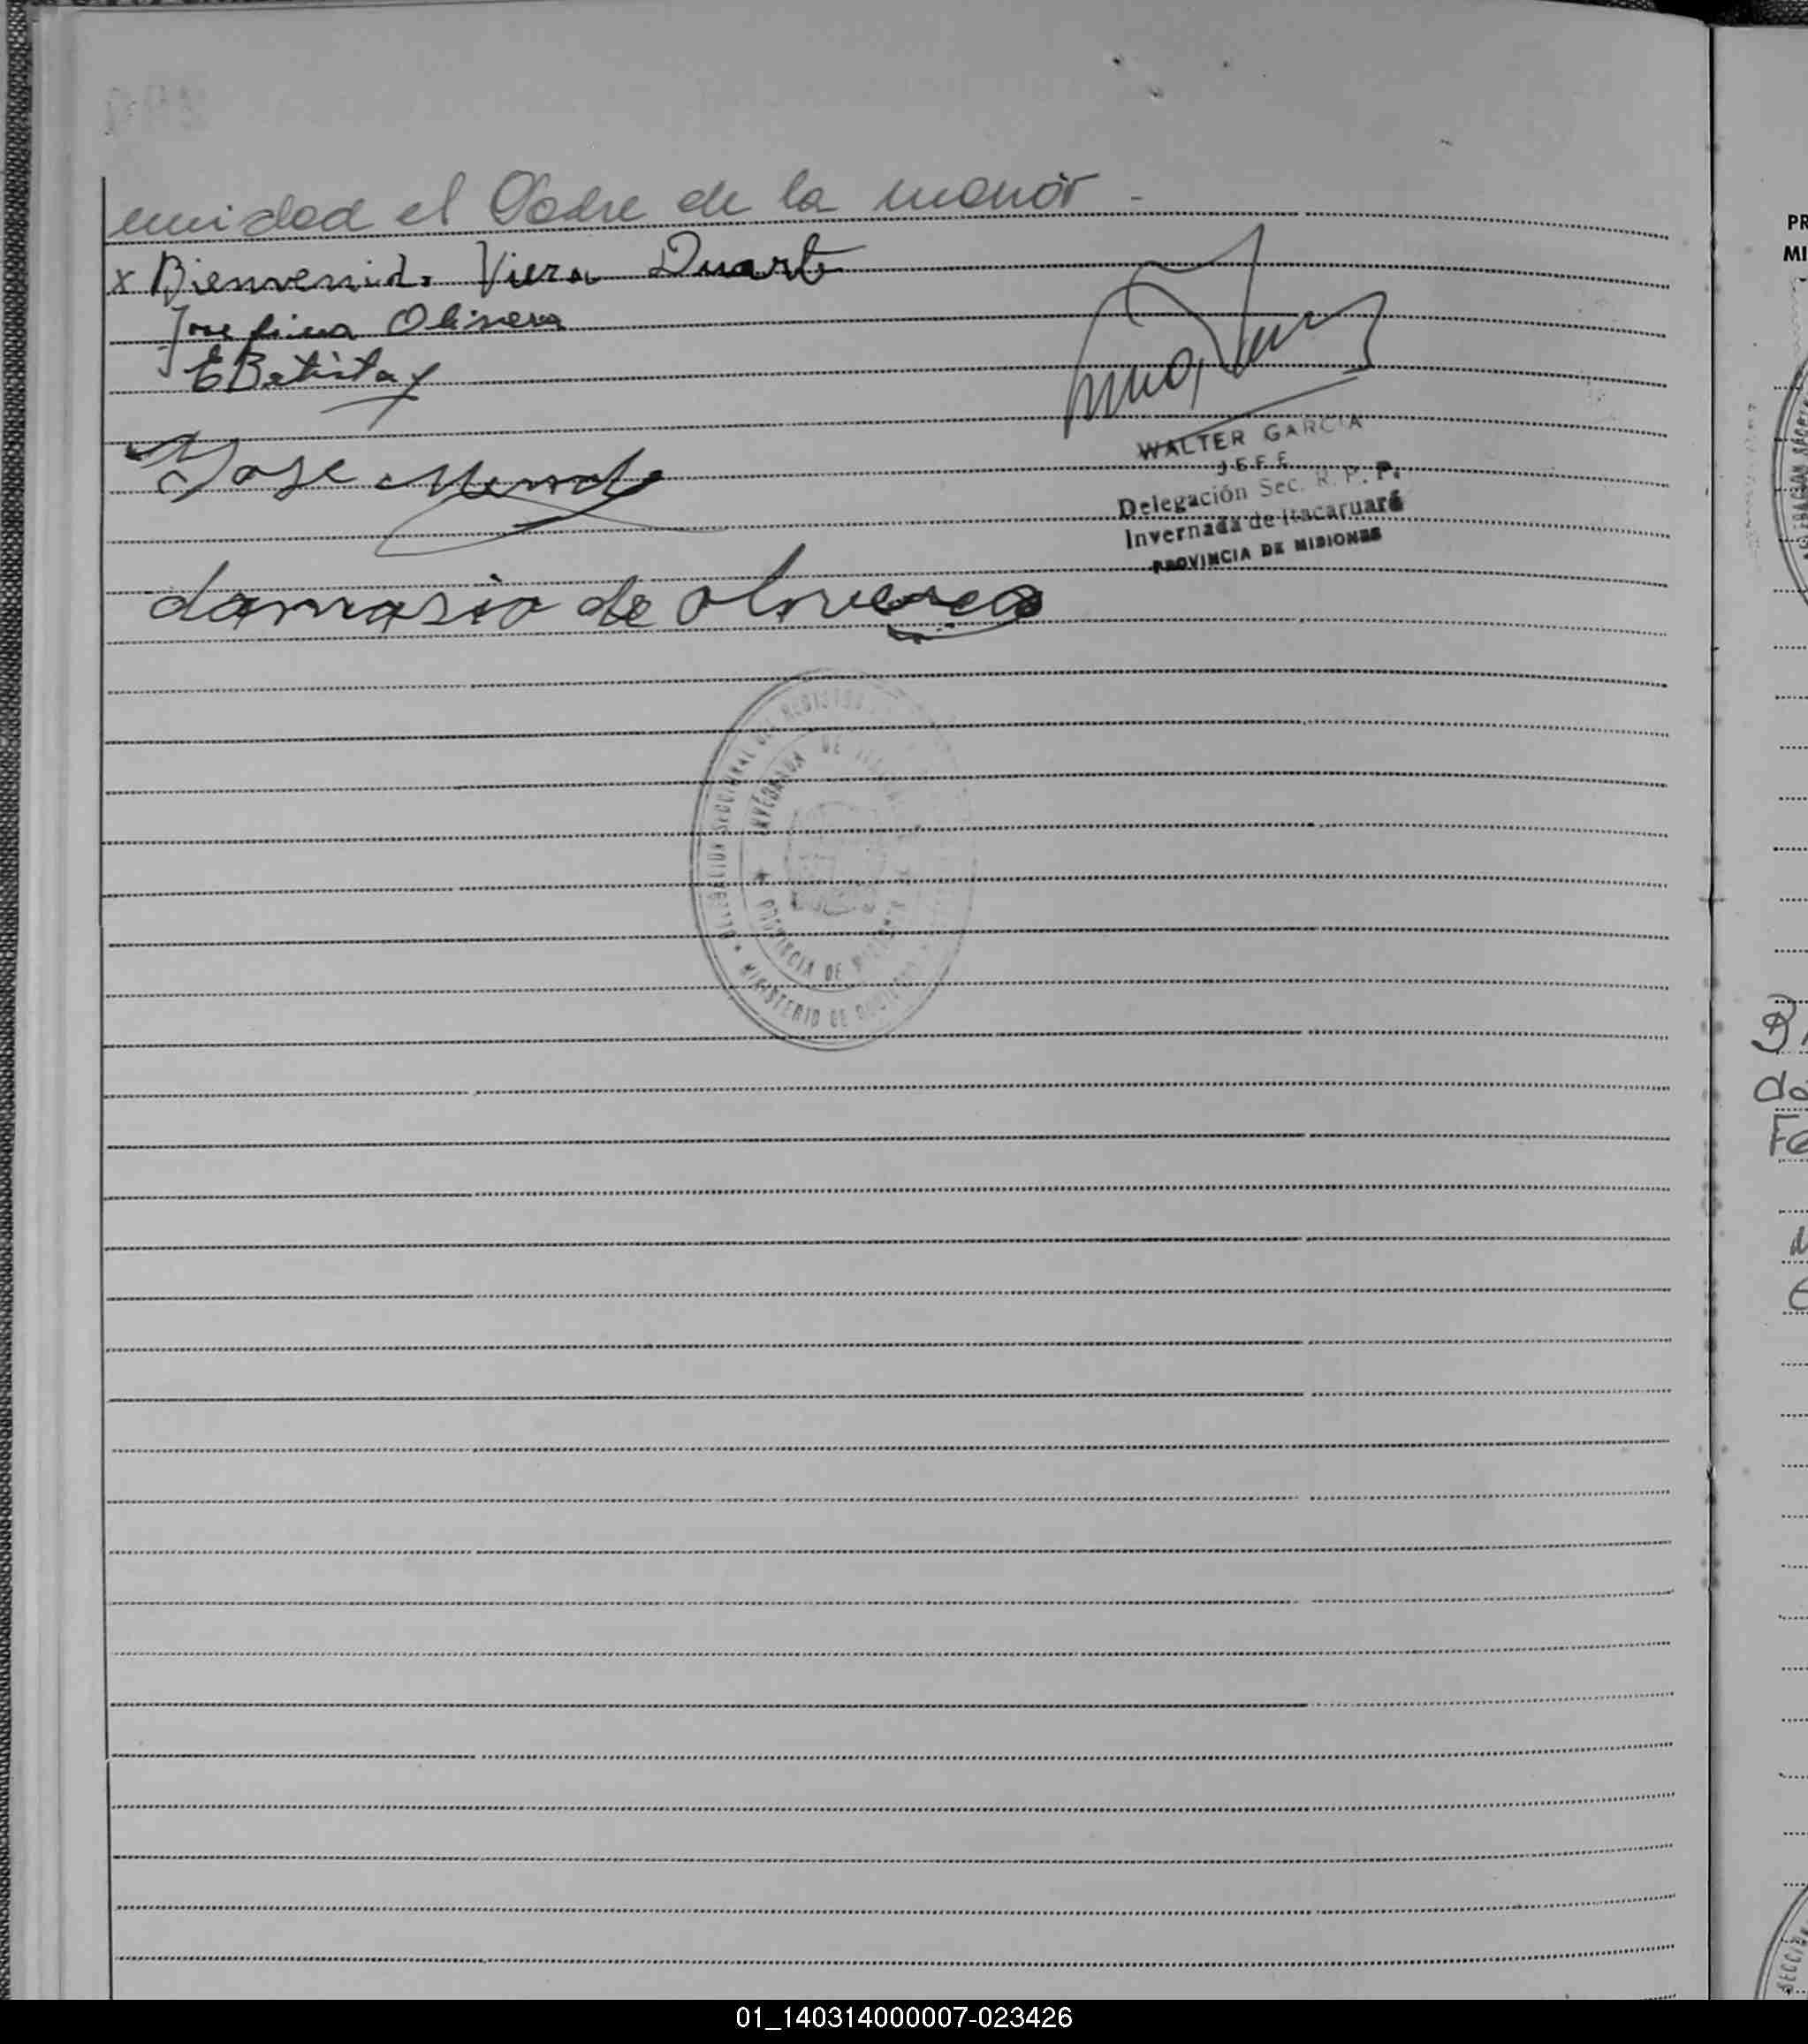 unidad el Padre de la menor -
x Bienvenido Viera Duarte
Josefina Olivera
E Batista
Jose
damasio de oliveira
WALTER GARCIA
JEFE
Delegación Sec. R. P. P.
Invernada de Itacaruaré
PROVINCIA DE MISIONES
DELEGACION SECCIONAL DEL REGISTRO
INVERNADA DE
PROVINCIA DE MISIONES
MINISTERIO DE
PR
MI
B
da
Fe
SECCI
01_140314000007-023426